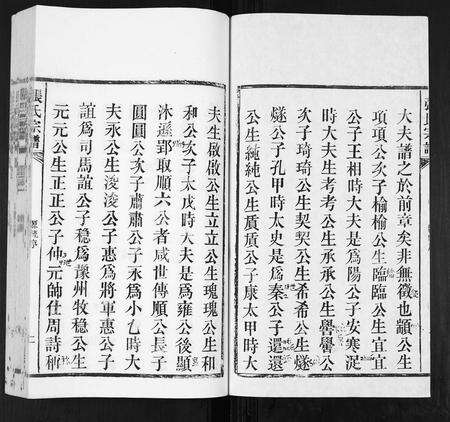 大夫譜之於前章矣非無徵也顓公生
項項公次子楡楡公生臨臨公生宜宜
公子王相時大夫是爲陽公子安寒浞
時大夫生考考公生承承公生譽譽公
次子琦琦公生契契公生希希公生燧
燧公子孔甲時太史是爲秦公子還還
公生純純公生質質公子康太甲時大
夫生啟啟公生立立公生瑰瑰公生和
和公次子太戊時大夫是爲雍公後顯
沐遜郢取順六公者咸世傳順公長子
圓圓公次子肅肅公子永爲小乙時大
夫永公生浚浚公子惠爲將軍惠公子
誼爲司馬誼公子穩爲豫州牧穩公生
元元公生正正公子仲元帥仕周詩稱
張氏宗譜